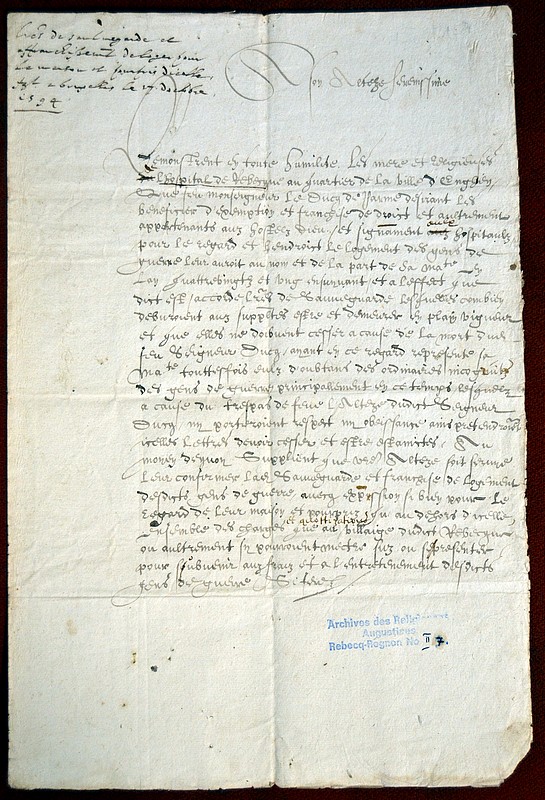 Lres de sauluegarde et
affranchissement de logis pour
la maison et
a bruxelles le 17 doctobre
1594
A son Alteze serenissime
Remonstrent en toute humilité Les mere et Religieuses
de l'hospital de Rebecque au quartier de la ville d'Enghien
Que feu monseigneur Le Ducq de Parme desirant Les
benefices d'exemption et franchise de droict et aultrement
appertenants aux hostelz Dieu et signament aux hospitaulx
pour le regard et L'endroict Le logement des gens de
guerre Leur auroit au nom et de la part de Sa Mate
Lan quattrevingtz et ung ensuyvant et a l'effect que
dict est accordé Lres de Sauveguarde lesquelles combien
debvroient aux supptes estre et demeurer en plain vigueur
et que elles ne doibvent cesser a cause de la mort dudict
feu Seigneur Ducq, ayant en ce regard representé sa
Mate touttesfois eulx doubtans des ordinaires
des gens de guerre principallement en ce temps lesquelz
a cause du trespas de feue L'Alteze dudict Seigneur
Ducq ny porteroient respect ny obeissance ains pretendroient
icelles Lettres devoir cesser et estre
moyen dequoy Supplient que vre Alteze soit servie
Leur confirmer Ladicte Sauveguarde et franchise de Logement
desdicts gens de guerre avecq expression si bien pour Le
regard de leur maison et pourpris qu au dehors d'icelle
et quottisations
Ensemble des charges que au village dudict Rebecque
ou aultrement lon pourroient mectre sus ou presenter
pour subvenir aux fraiz et a L'entretenement desdicts
gens de guerre
Archives des Religieuses
Augustines
Rebecq-Rognon No II 7.